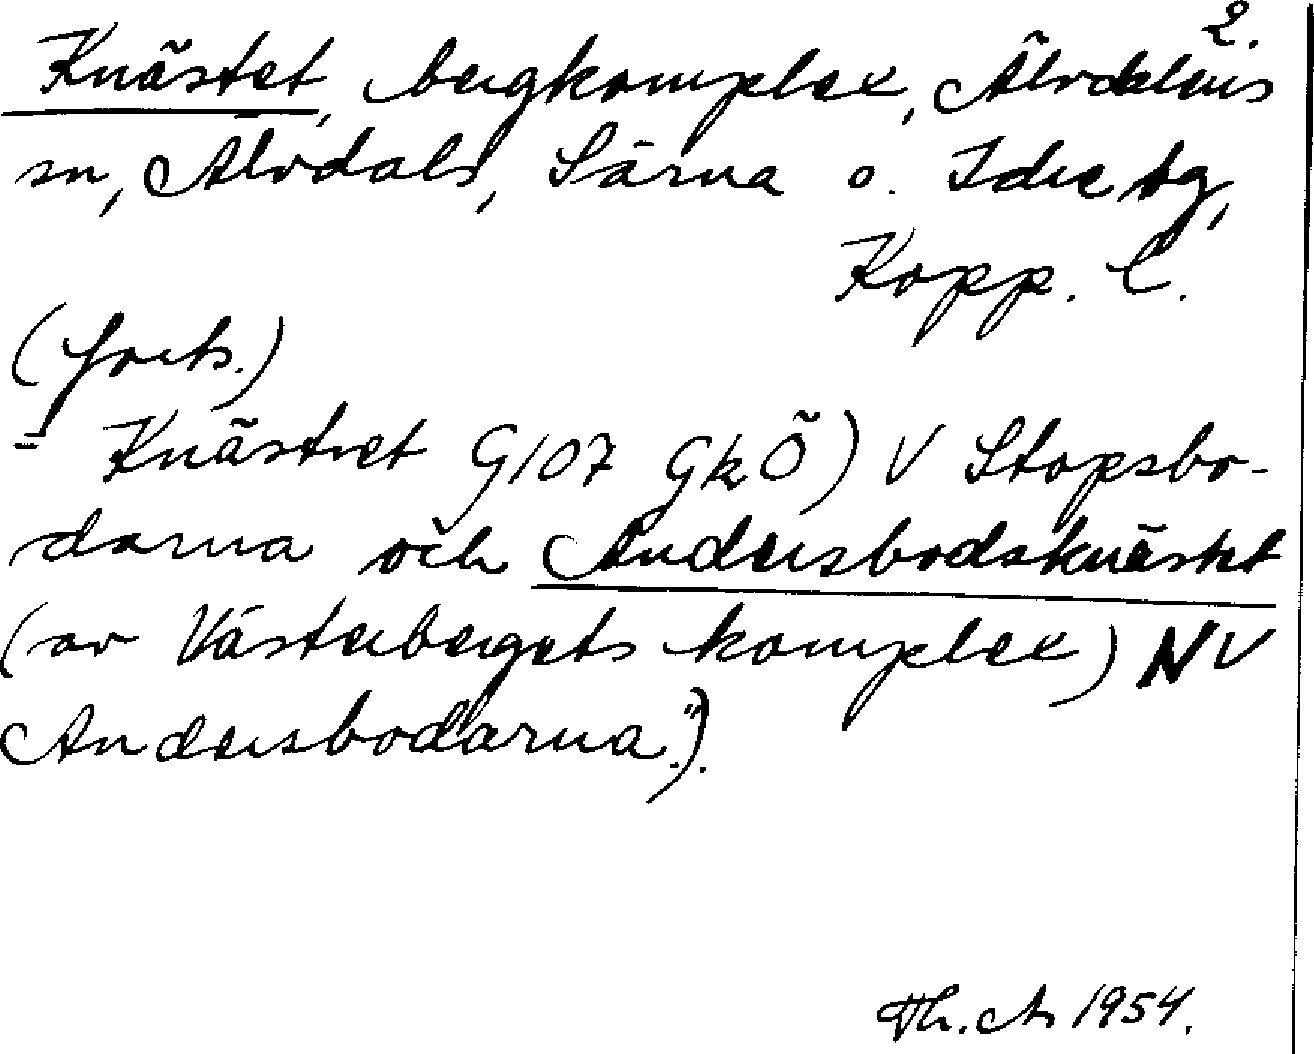 2.
Knästet, bergkomplex, Älvdalens
sn, Älvdals, Särna o. Idre tg,
Kopp. l.
(forts.)
= Knästret G107 GkÖ) V Stopsbo-
darna och Andersbodsknästet
(av Västerbergets komplex) NV
Andersbodarna.").
1954.